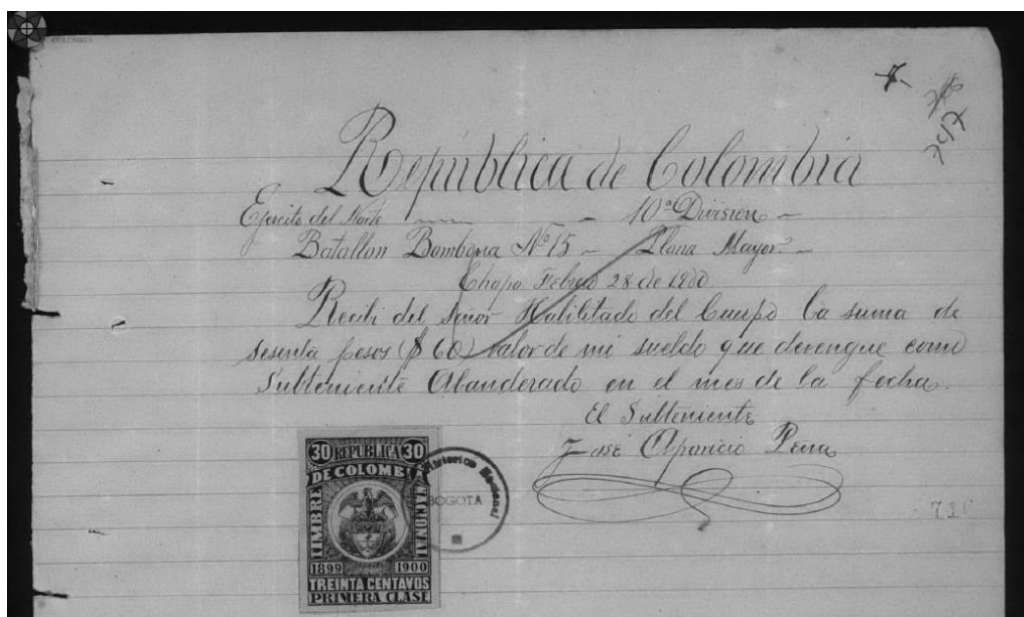 7
706
757
República de Colombia
Ejército del Norte - 10ª Division -
Batallon Bomboná Nº 15 - Plana Mayor -
Chapo Febrero 28 de 1900
Recibi del Señor Habilitado del Cuerpo la suma de
sesenta pesos ($ 60) valor de mi sueldo que devengue como
Subteniente Abanderado en el mes de la fecha.
El Subteniente
José Aparicio Pena
30 REPUBLICA 30
DE COLOMBIA
TIMBRE NACIONAL
1899 1900
TREINTA CENTAVOS
PRIMERA CLASE
Historico Nacional
BOGOTA
710